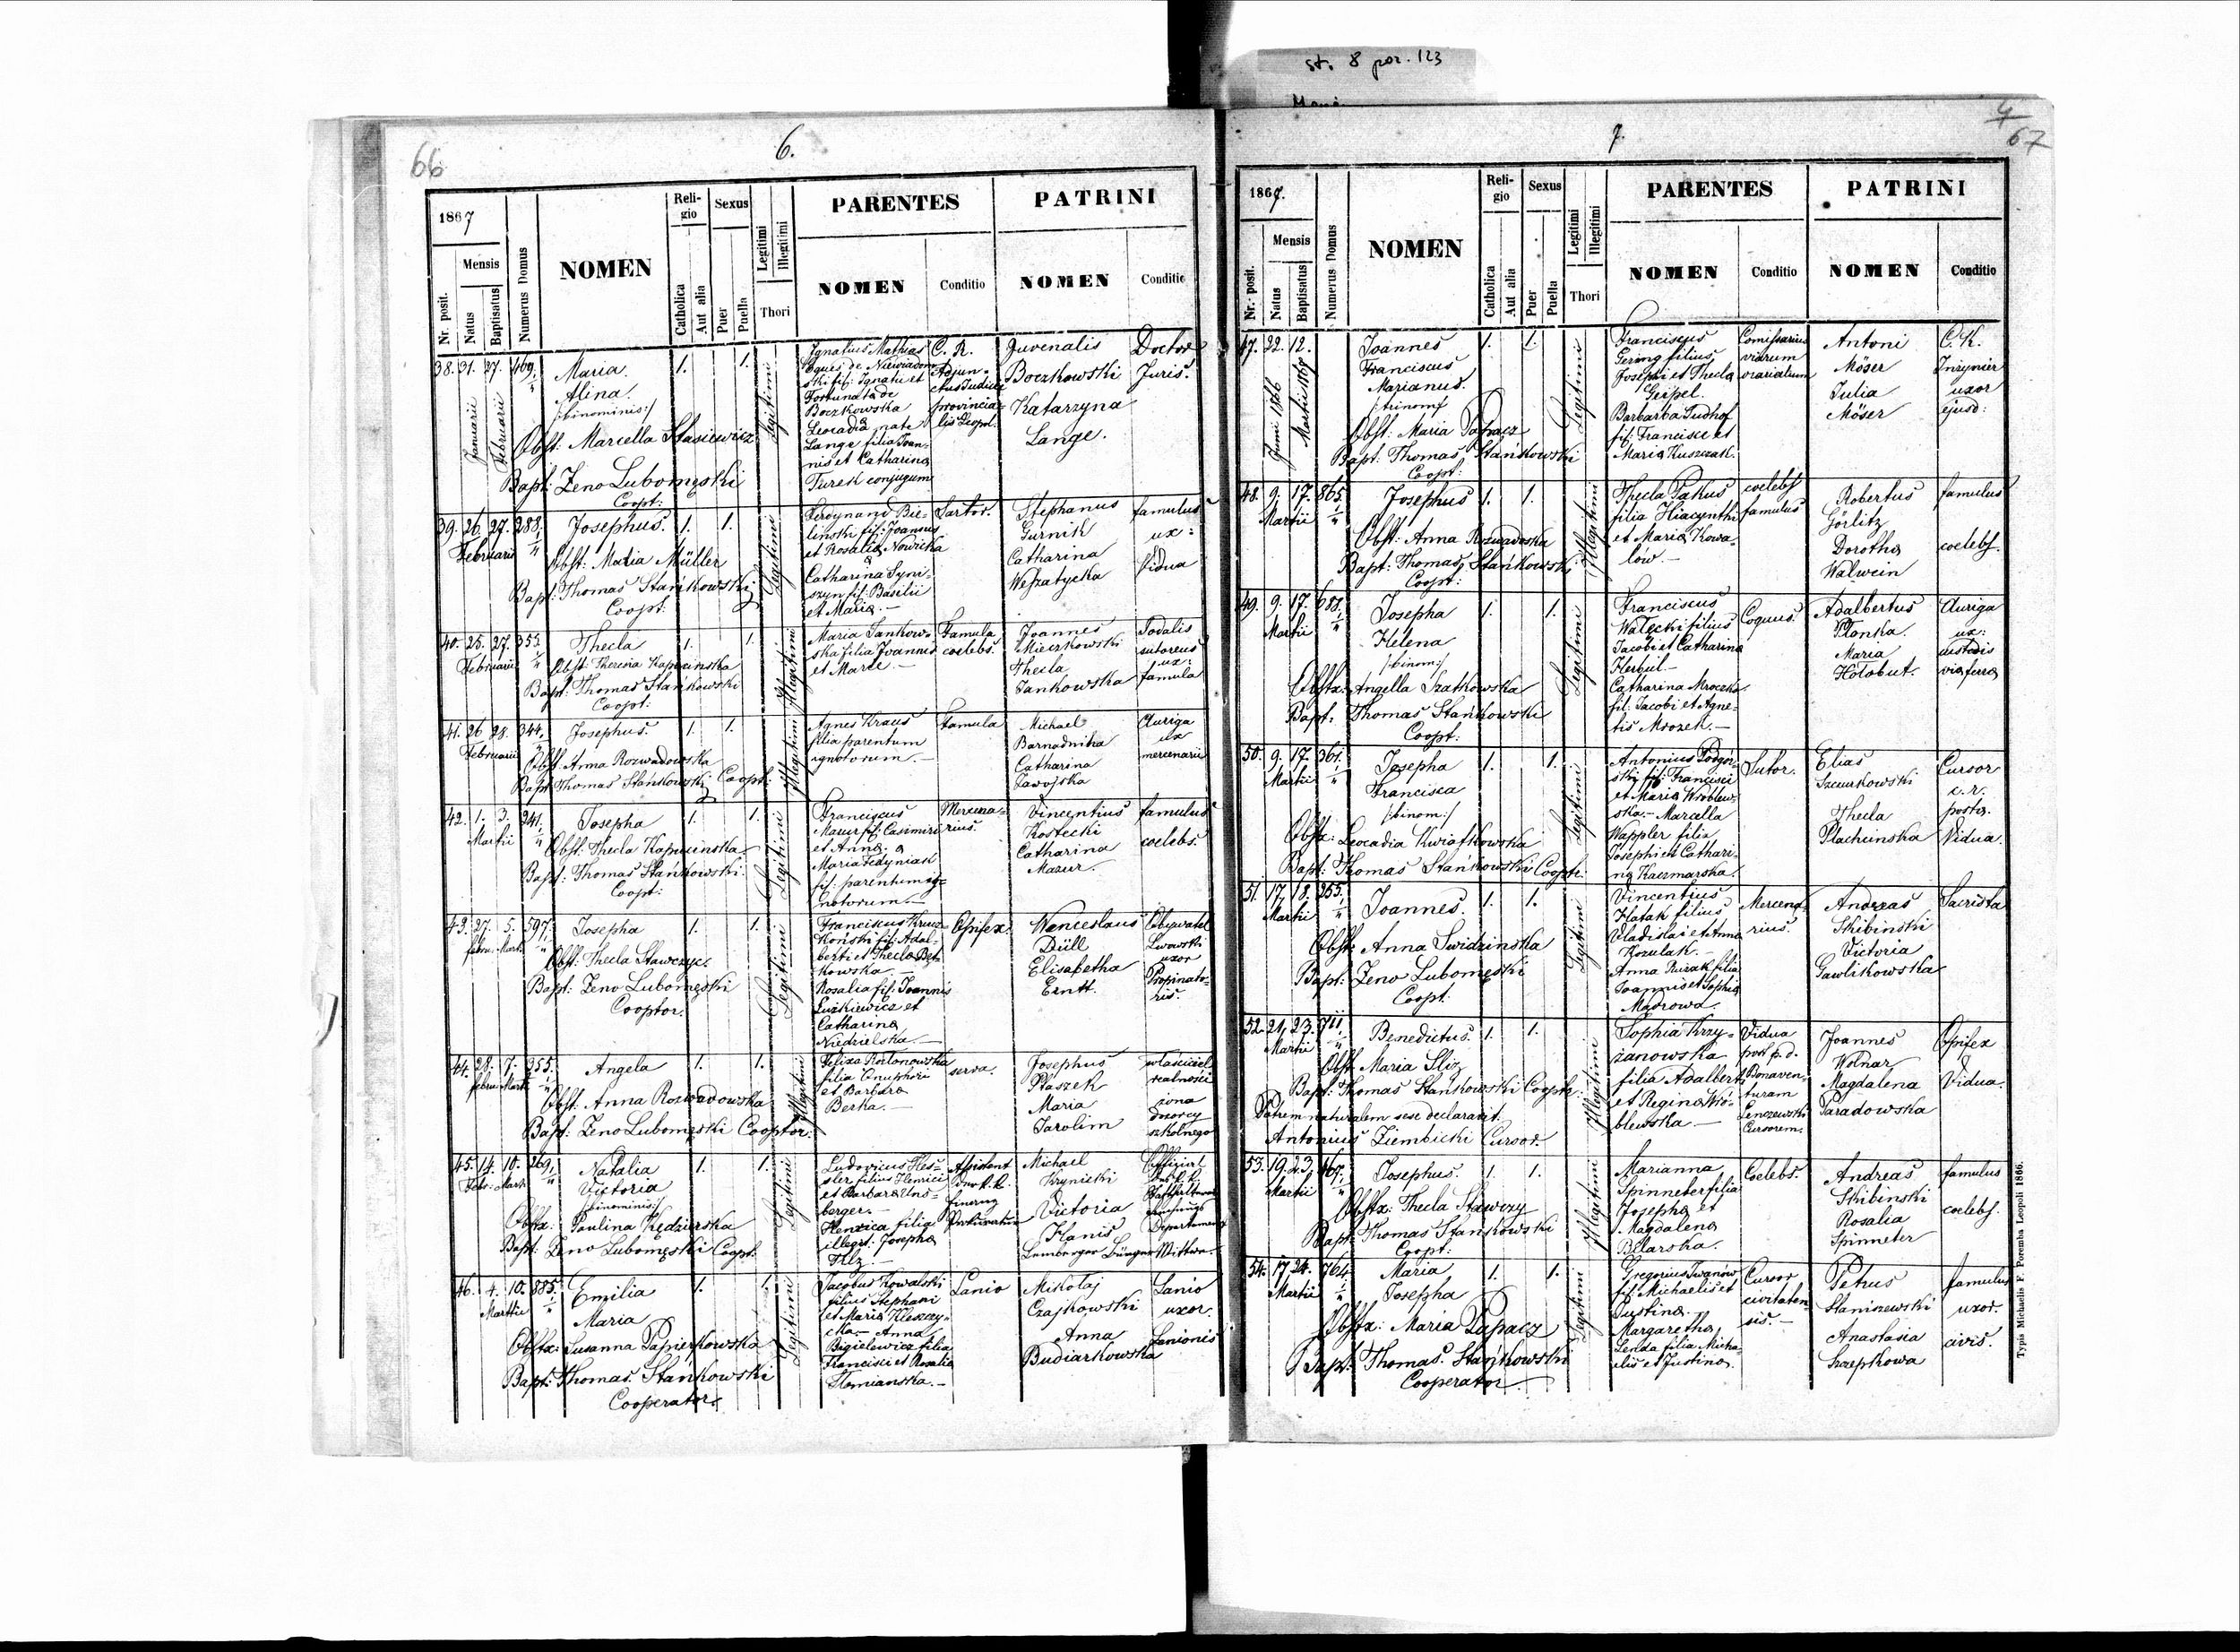 st. 8 poz. 123
66
6.
1867
Nr. posit.
Mensis
Natus
Baptisatus
Numerus Domus
NOMEN
Reli-
gio
Catholica
Aut alia
Sexus
Puer
Puella
Legitimi
Illegitimi
Thori
PARENTES
NOMEN
Conditio
PATRINI
NOMEN
Conditio
38. 31. 27. 469.
Januarii
Februarii
Maria
Alina
/:binominis:/
Obst: Marcella Stasiewicz
Bapt: Zeno Lubomęski
Coopt:
1. 1.
Legitimi
Ignatius Mathias
Eques de Niewiadom-
ski fil: Ignatii et
Fortunata de
Boczkowska
Leocadia nata
Lange filia Joan-
nis et Catharina
Turek conjugum
C. R.
Adjun-
ctus Judicii
provincia-
lis Leopol.
Juvenalis
Boczkowski
Katarzyna
Lange.
Doctor
Juris.
39. 26. 27. 288.
Februarii
Josephus.
Obst: Maria Müller
Bapt: Thomas Stańkowski
Coopt:
1. 1.
Legitimi
Ferdynand Bie-
linski fil: Joannis
et Rosalia Nowicka
Catharina Syni-
szyn fil: Basilii
et Maria.—
Sartor.
Stephanus
Gurnik
Catharina
Weszatycka
famulus
ux:
Vidua
40. 25. 27. 353.
Februarii
Thecla
Obst: Theresia Kapucinska
Bapt: Thomas Stańkowski
Coopt:
1. 1.
Illegitimi
Maria Jankow-
ska filia Joannis
et Marie.—
Famula
coelebs.
Joannes
Mieczkowski
Thecla
Jankowska
Sodalis
sutoreus
ux:
famula
41. 26. 28. 344.
Februarii
Josephus.
Obst: Anna Rozwadowska
Bapt: Thomas Stańkowski Coopt:
1. 1.
Illegitimi
Agnes Kraus
filia parentum
ignotorum.—
Famula
Michael
Barnadnika
Catharina
Zawojska
Auriga
ux
mercenarii
42. 1. 3. 241.
Martii
Josepha
Obst: Thecla Kapucinska
Bapt: Thomas Stańkowski
Coopt:
1. 1.
Legitimi
Franciscus
Mazur fil: Casimiri
et Anna.
Maria Fedyniak
fil: parentum ig-
notorum.—
Mercena-
rius.
Vincentius
Kostecki
Catharina
Mazur.
famulus
coelebs.
43. 27. 5. 597.
febru. Marti
Josepha
Obst: Thecla Stawczyc.
Bapt: Zeno Lubomęski
Cooptor.
1. 1.
Legitimi
Franciscus Krusz-
Koński fil: Adal-
berti et Thecla Bęt-
kowska.—
Rosalia fil: Joannis
Łuzkiewicz et
Catharina
Niedzielska.—
Opifex
Wenceslaus
Düll
Elisabetha
Erntt.
Obywatel
Lwowski
uxor
Propinato-
ris.
44. 28. 7. 355.
febru. Marti
Angela
Obst: Anna Rozwadowska
Bapt: Zeno Lubomęski Cooptor.
1. 1.
Illegitimi
filia Onuphrii
et Barbara
Berka.—
serva.
Josephus
Płaszek
Maria
Jarolim
właściciel
realności
żona
dozorcy
szkolnego
45. 14. 10. 269.
Febr: Mart:
Natalia
Victoria
/:binominis:/
Obstx: Paulina Kędzierska
Bapt: Zeno Lubomęski Coopt.
1. 1.
Legitimi
Ludovicus Hes-
sler filius Henrici
et Barbara Uns-
berger.—
Henrica filia
illegit: Josepha
Hlz.—
Assistent
der k.k.
Finanz
Michael
Krynicki
Victoria
Kanis
Lemberger Bürgers Wittwe.
Offizial
Departement
46. 4. 10. 885.
Martii
Emilia
Maria
Obstx: Susanna Papierkowska
Bapt: Thomas Stańkowski
Cooperator
1. 1.
Legitimi
Jacobus Kowalski
filius Stephani
et Maria Kleszczy-
cka.— Anna
Bigielewicz filia
Francisci et Rosalia
Słomianska.—
Lanio
Mikołaj
Czajkowski
Anna
Budiarkowska
Lanio
uxor
Lanionis
4
67
7.
1867.
Nr. posit.
Mensis
Natus
Baptisatus
Numerus Domus
NOMEN
Reli-
gio
Catholica
Aut alia
Sexus
Puer
Puella
Legitimi
Illegitimi
Thori
PARENTES
NOMEN
Conditio
PATRINI
NOMEN
Conditio
47. 22. 12.
Junii 1866
Martii 1867
Joannes
Franciscus
Marianus.
/:trinom:/
Obst: Maria Papacz
Bapt: Thomas Stańkowski
Coopt:
1. 1.
Legitimi
Franciscus
Gering filius
Josephi et Thecla
Geipel.
Barbara Tudhof
fil: Francisci et
Maria Kuszczak.
Comissarius
viarum
viariatum
Antoni
Möser
Julia
Möser
C. K.
Inżynier
uxor
ejusd:
48. 9. 17. 865.
Martii
Josephus
Obst: Anna Rozwadowska
Bapt: Thomas Stańkowski
Coopt:
1. 1.
Illegitimi
Thecla Pakus
filia Hiacynthi
et Maria Kowa-
lów.—
coelebs
famulus
Robertus
Görlitz
Dorotha
Walwein
famulus
coelebs.
49. 9. 17. 688.
Martii
Josepha
Helena
/:binom:/
Obstx: Angella Szatkowska
Bapt: Thomas Stańkowski
Coopt:
1. 1.
Legitimi
Franciscus
Wałęcki filius
Jacobi et Catharina
Herbul—
Catharina Mroczko
fil: Jacobi et Agne-
tis Mrozek.—
Coquus.
Adalbertus
Płonka.
Maria
Hołobut.
Auriga
ux:
custodis
via ferra
50. 9. 17. 361.
Martii
Josepha
Francisca
/:binom:/
Obstx: Leocadia Kwiatkowska
Bapt: Thomas Stańkowski Coopt:
1. 1.
Legitimi
Antonius Podgór-
ski fil: Francisci
et Maria Wróblew-
ska.— Marcella
Wappler filia
Josephi et Cathari-
na Kaczmarska.
Sutor.
Elias
Szczurkowski
Thecla
Plachcinska
Cursor
c. r.
posta.
Vidua.
51. 17. 18. 255.
Martii
Joannes.
Obstx: Anna Swidzinska
Bapt: Zeno Lubomęski
Coopt.
1. 1.
Legitimi
Vincentius
Hatak filius
Vladislai et Anna
Kozulak.—
Anna Ruzak filia
Joannis et Sophia
Madrowa.
Mercena-
rius.
Andreas
Skibinski
Victoria
Gawlikowska
Sacrista
52. 21. 23. 711.
Martii
Benedictus.
Obst: Maria Sliz
Bapt: Thomas Stańkowski Cooptr.
Patrem naturalem sese declaravit
Antonius Ziembicki Cursor.
1. 1.
Illegitimi
Sophia Krzy-
zanowska
filia Adalberti
et Regina Wró-
blewska—
Vidua
post p. d.
Bonaven-
turam
Cursorem.
Joannes
Wolnar
Magdalena
Paradowska
Opifex
Vidua.
53. 19. 23. 467.
Martii
Josephus.
Obstx: Thecla Stawczy
Bapt: Thomas Stańkowski
Coopt:
1. 1.
Illegitimi
Marianna
Spinneter filia
Josepha et
Magdalena
Bilarska.
Coelebs.
Andreas
Skibinski
Rosalia
Spinneter
famulus
coelebs.
54. 17. 24. 764.
Martii
Maria
Josepha
Obstx: Maria Papacz
Bapt: Thomas Stańkowski
Cooperator
1. 1.
Legitimi
Gregorius Iwanów
fil: Michaelis et
Justina.
Margaretha
Senda filia Micha-
elis et Justina.
Cursor
civitaten
sis.—
Petrus
Staniszewski
Anastasia
Szczepkowa
famulus
uxor.
civis.
Typis Michaelis F. Poremba Leopoli 1866.